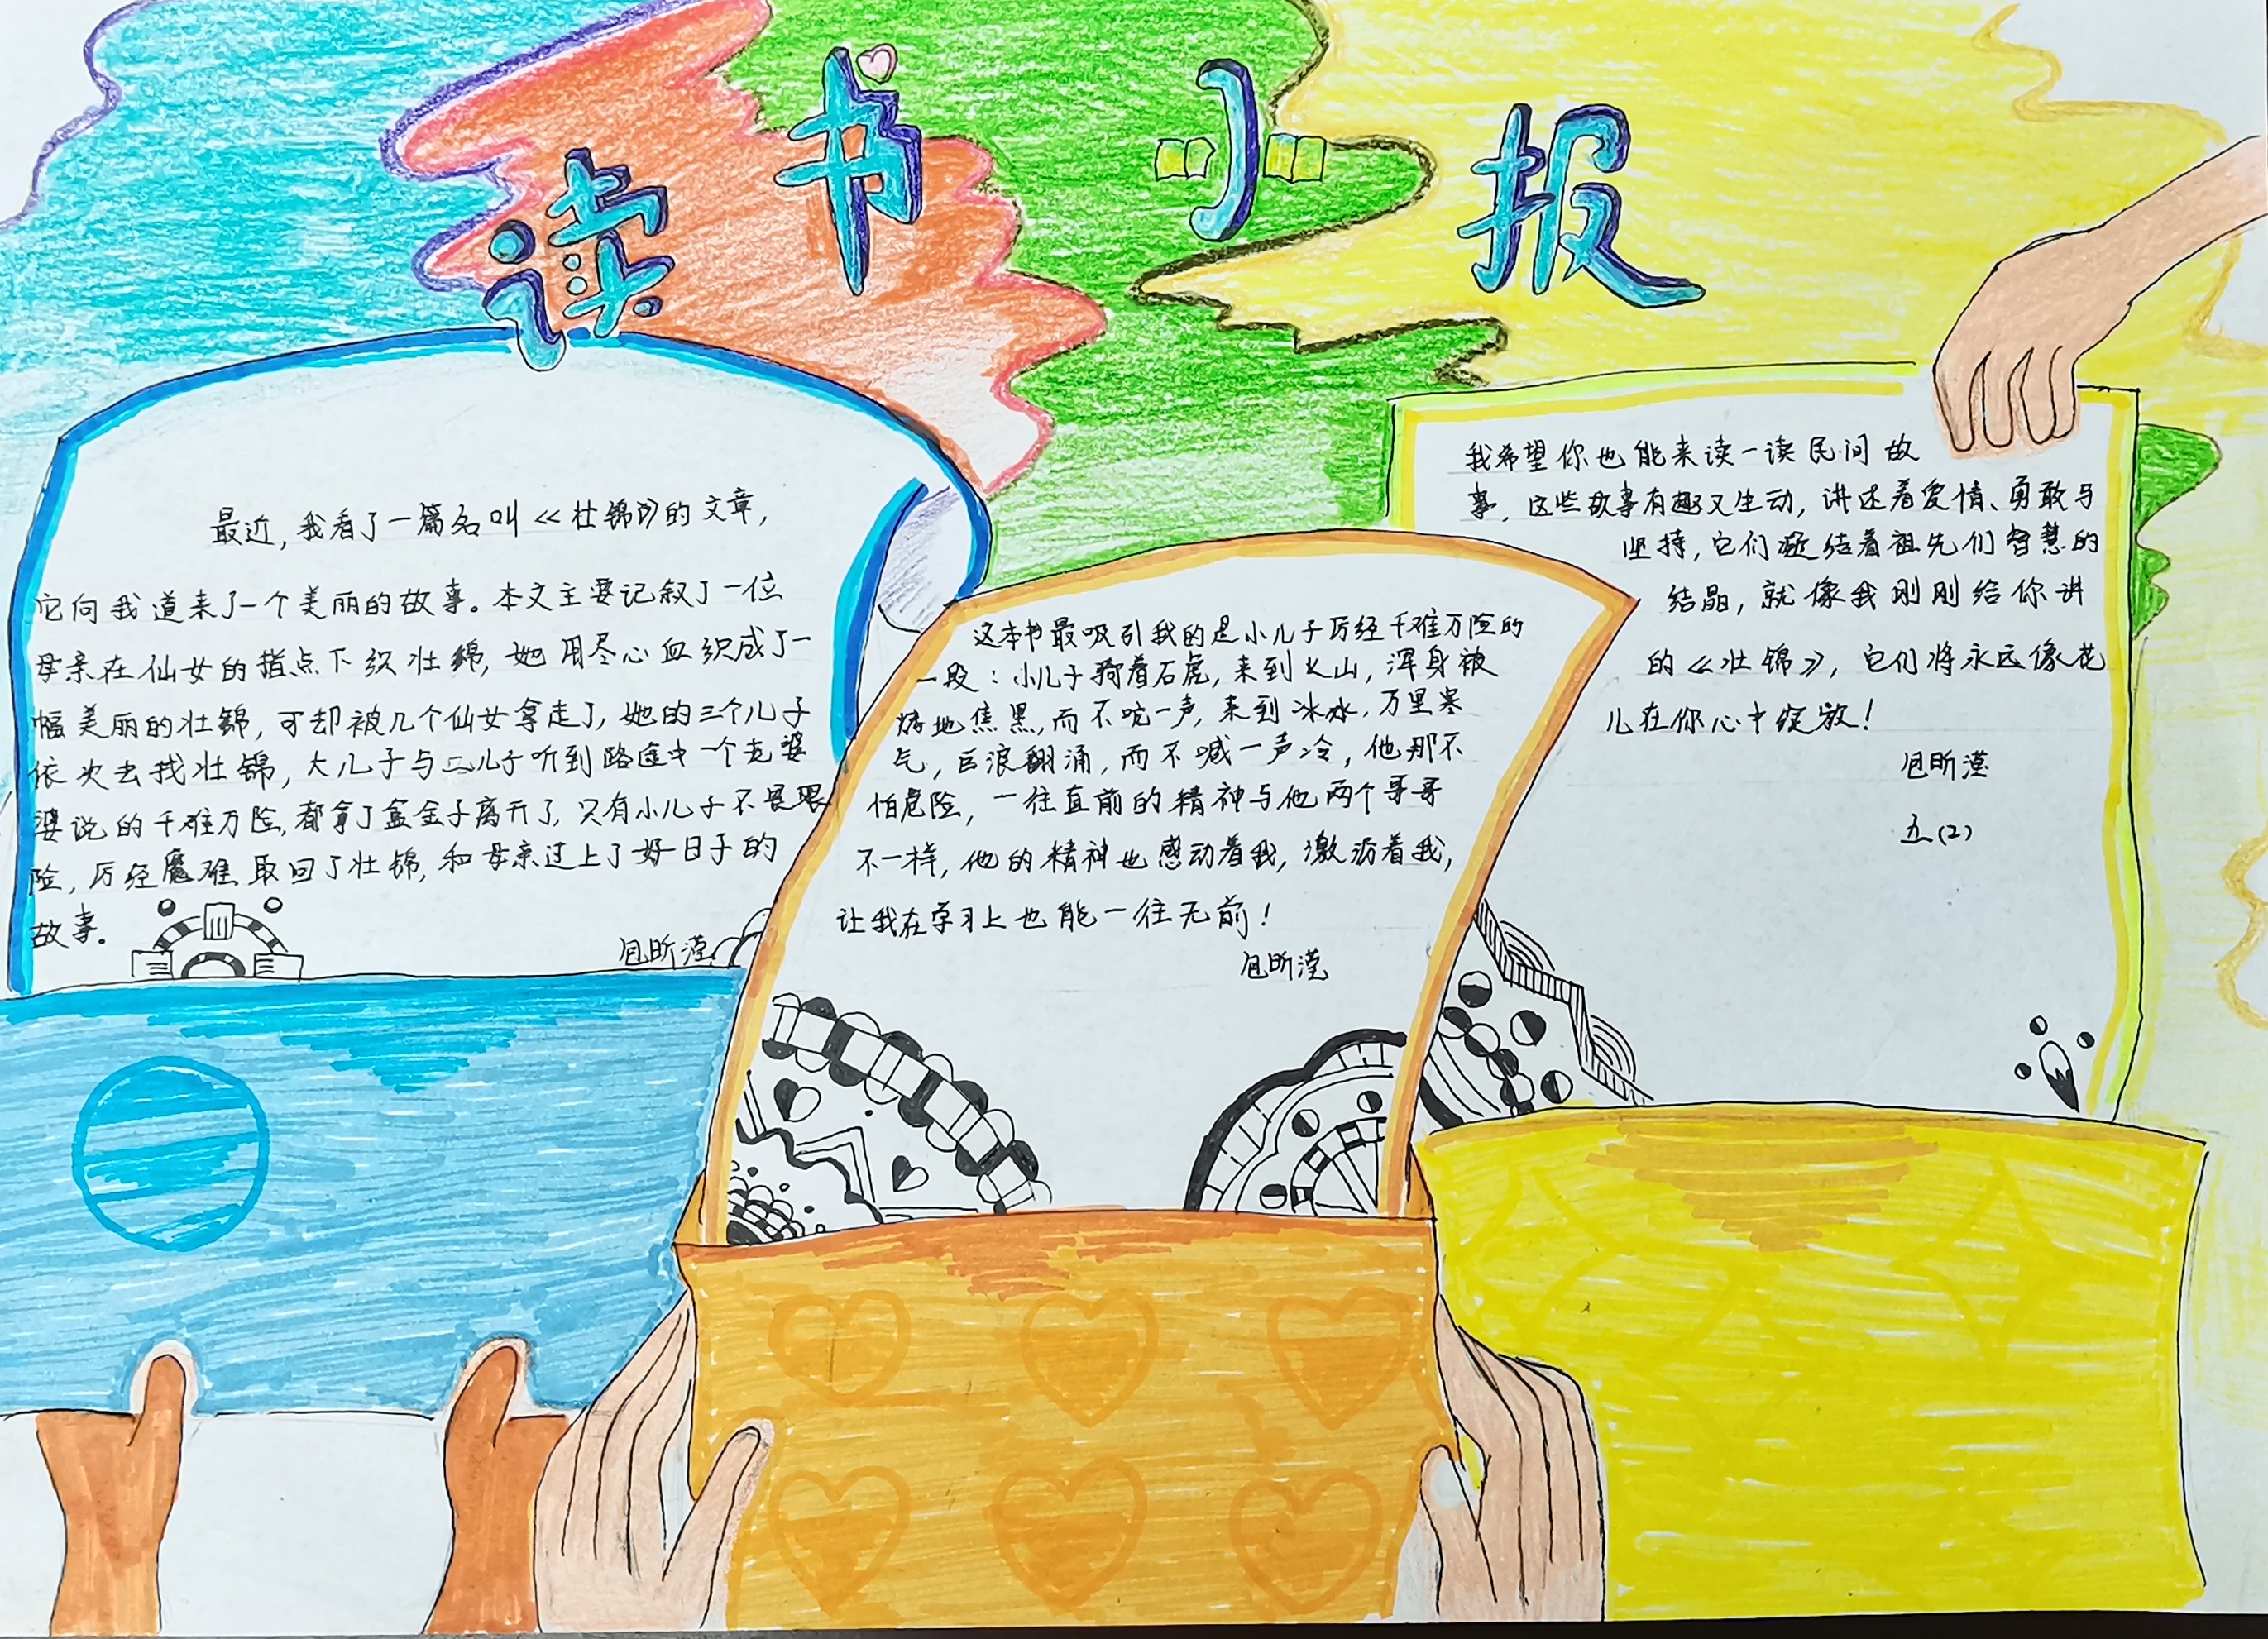 读书小报
最近,我看了一篇名叫《壮锦》的文章,
它向我道来了一个美丽的故事。本文主要记叙了一位
母亲在仙女的指点下织壮锦,她用尽心血织成了一
幅美丽的壮锦,可却被几个仙女拿走了,她的三个儿子
依次去找壮锦,大儿子与二儿子听到路途中一个老婆
婆说的千难万险,都拿了盒金子离开了,只有小儿子不畏艰
险,历经魔难取回了壮锦,和母亲过上了好日子的
故事。
昕滢
这本书最吸引我的是小儿子历经千难万险的
一段:小儿子骑着石虎,来到火山,浑身被
烧地焦黑,而不吭一声,来到冰水,万里寒
气,巨浪翻涌,而不喊一声冷,他那不
怕危险,一往直前的精神与他两个哥哥
不一样,他的精神也感动着我,激励着我,
让我在学习上也能一往无前!
昕滢
我希望你也能来读一读民间故
事,这些故事有趣又生动,讲述着爱情、勇敢与
坚持,它们凝结着祖先们智慧的
结晶,就像我刚刚给你讲
的《壮锦》,它们将永远像花
儿在你心中绽放!
昕滢
五(2)